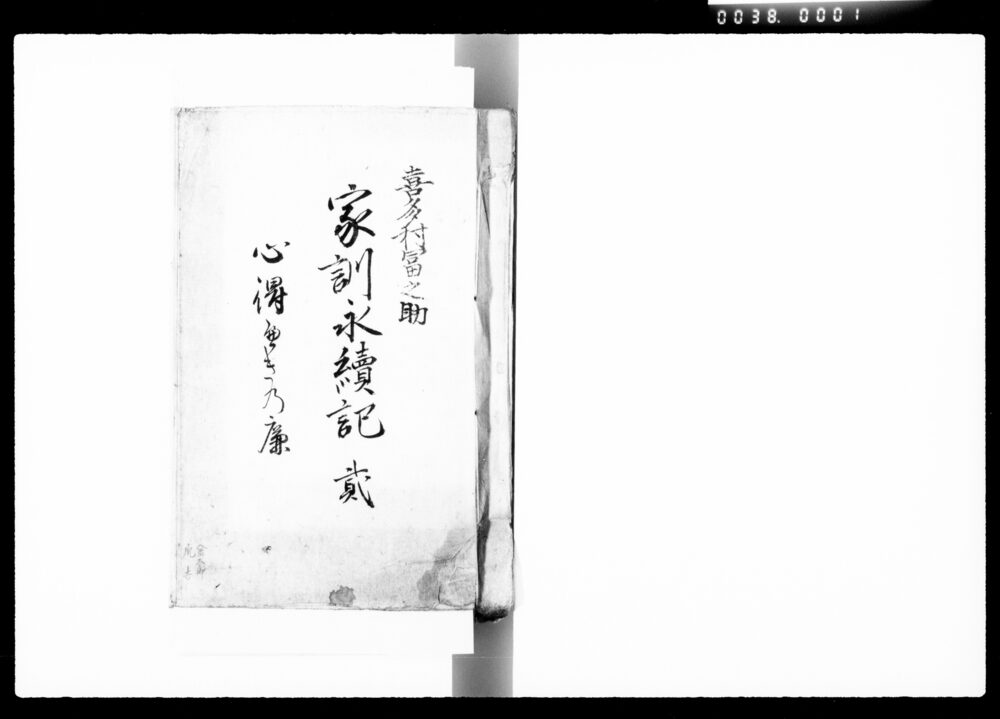 0038. 0001
喜多村富之助
家訓永續記 貳
心得每き乃廉